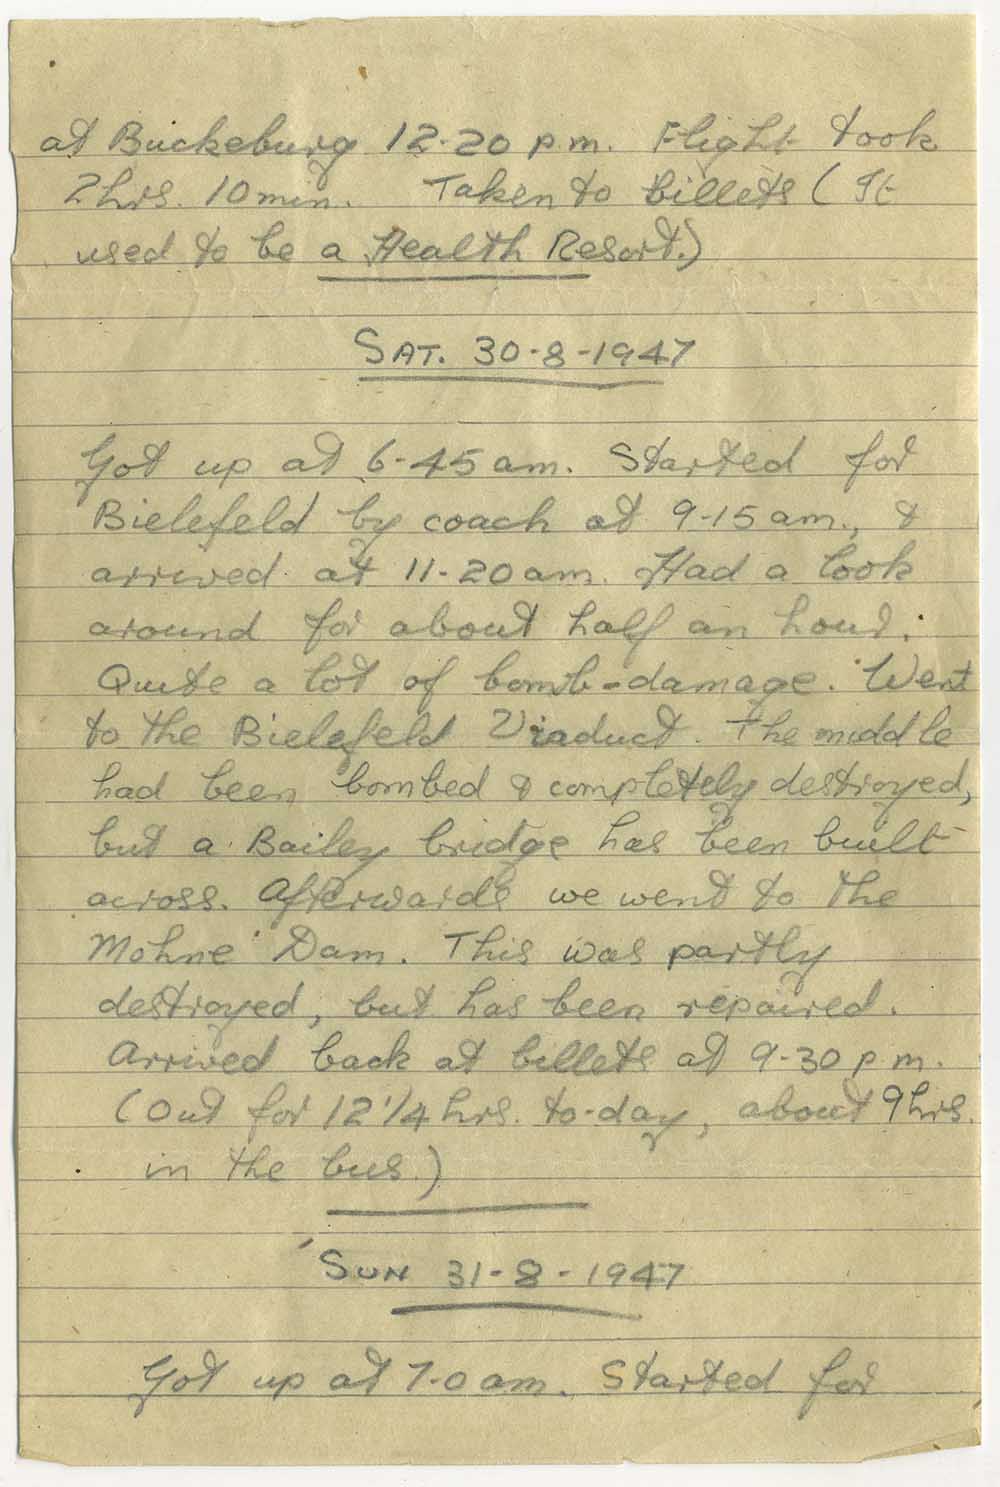 at Buckeburg 12-20 p.m. Flight took
2hrs. 10 min. Taken to billets (It
used to be a Health Resort.)
SAT. 30-8-1947
Got up at 6-45 am. Started for
Bielefeld by coach at 9-15 am., &
arrived at 11-20 am. Had a look
around for about half an hour.
Quite a lot of bomb-damage. Went
to the Bielefeld Viaduct. The middle
had been bombed & completely destroyed,
but a Bailey bridge has been built
across. Afterwards we went to the
Mohne Dam. This was partly
destroyed, but has been repaired.
Arrived back at billets at 9-30 p.m.
(Out for 12 1/4 hrs. to-day, about 9 hrs.
in the bus.)
SUN 31-8-1947
Got up at 7-0 am. Started for